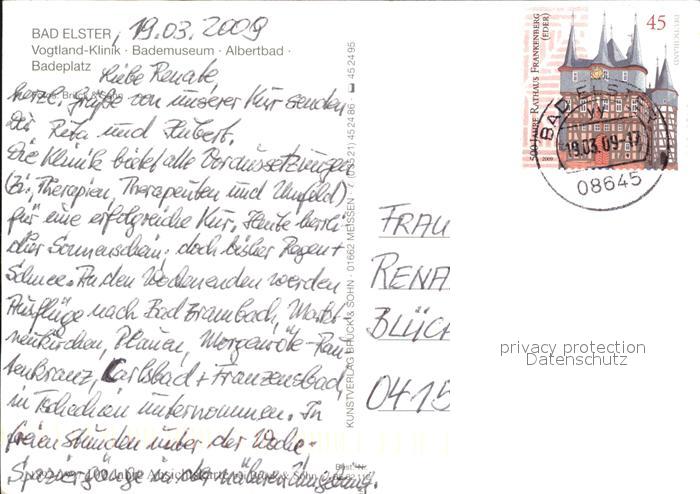 BAD ELSTER, 19.03.2009
Vogtland-Klinik · Bademuseum · Albertbad ·
Badeplatz
Liebe Renate,
herzl. Grüße von unserer Kur senden
Dir Rita und Hubert.
Die Klinik bietet alle Voraussetzungen
(Zi., Therapien, Therapeuten und Umfeld)
für eine erfolgreiche Kur. Heute herrli-
cher Sonnenschein; doch bisher Regen +
Schnee. An den Wochenenden werden
Ausflüge nach Bad Brambach, Markt-
neukirchen, Plauen, Morgenröte-Rau-
tenkranz, Carlsbad + Franzensbad,
in Tschechien unternommen. In
freien Stunden unter der Woche -
Spaziergänge in der näheren Umgebung.
Best.-Nr.
KUNSTVERLAG BRÜCK & SOHN · 01662 MEISSEN · 7 (03521) 45 24 86 · 45 24 95
500 JAHRE RATHAUS FRANKENBERG
(EDER)
45
DEUTSCHLAND
2009
BAD ELSTER
vv
19.03.09-17
08645
FRAU
RENA
BLÜCH
0415
privacy protection
Datenschutz